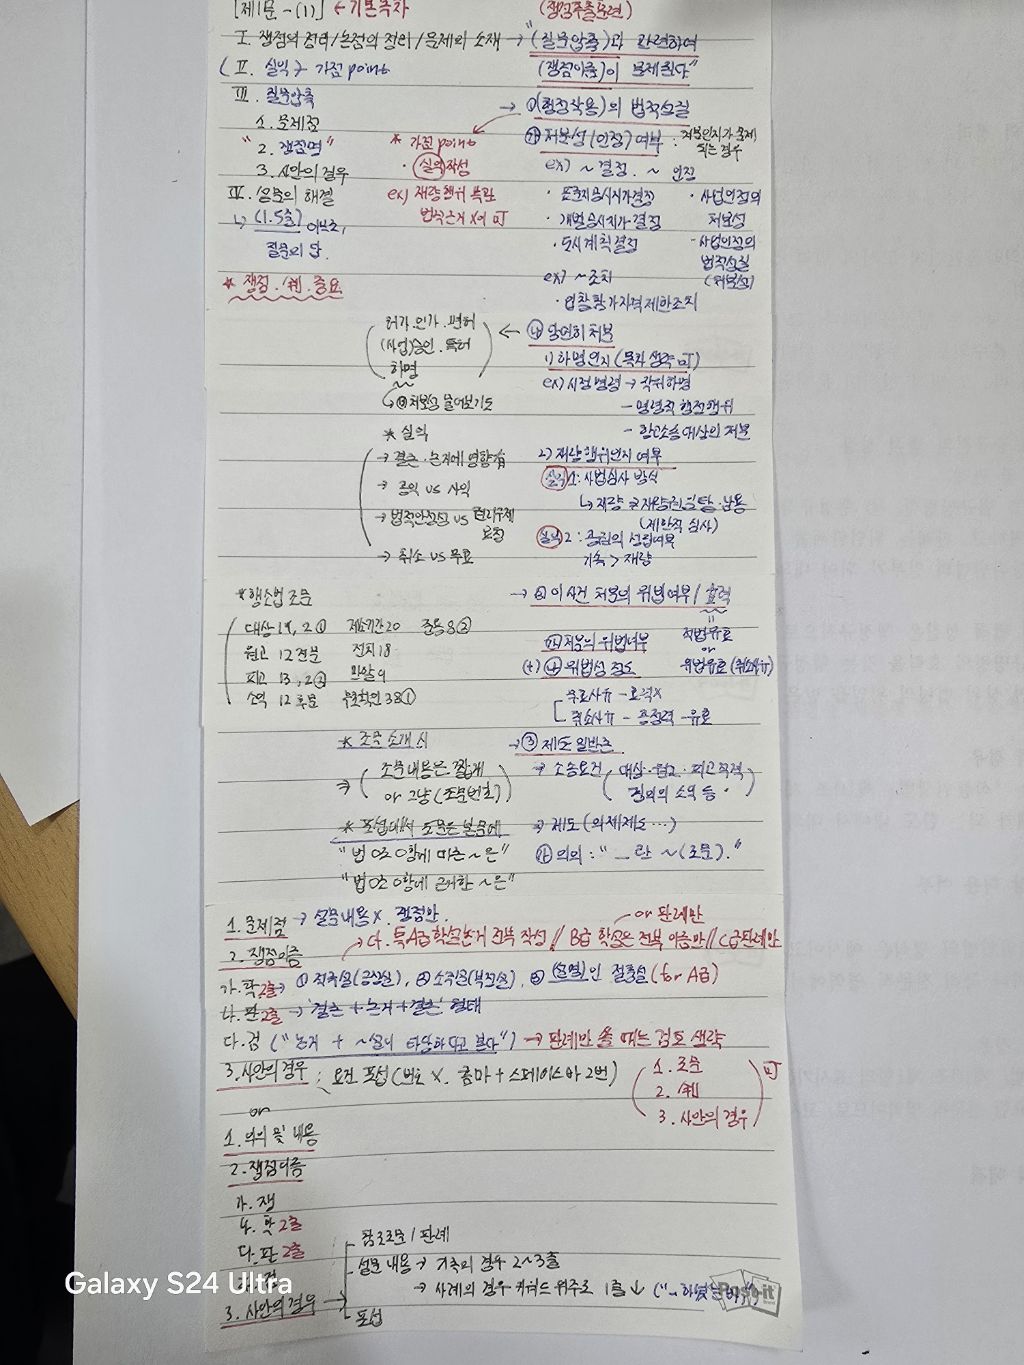 [제1문-(1)] ← 기본목차
(쟁점추출훈련)
I. 쟁점의 정리/논점의 정리/문제의 소재 → "(질문압축)과 관련하여
(쟁점이름)이 문제된다"
(II. 실익 } 가점 point
III. 질문압축
1. 문제점
"2. 쟁점명"
3. 사안의 경우
IV. 설문의 해결
↳ (1.5줄) 이부호,
질문의 답.
* 쟁점. 判. 중요
* 가점 point
· 실익 작성
ex) 재량행위 특관
법적근거 X여 可
→ ①(행정작용)의 법적성질
㉮ 처분성(인정) 여부 : 처분인지가 문제되는 경우
ex) ~ 결정. ~ 인정
· 표준지공시지가결정
· 개별공시지가결정
· 도시계획결정
· 사업인정의
처분성
· 사업인정의
법적성질
(처분성)
ex) ~ 조치
· 입찰참가자격제한조치
허가.인가.면허
(사업)승인.특허
하명
↳ ㉮처분성 물어보기도
← ㉯ 당연히 처분
1) 하명인지 (목차 생략 可)
ex) 시정명령 → 작위하명
- 명령적 행정행위
- 항고소송 대상의 처분
2) 재량행위인지 여부
실익1: 사법심사 방식
↳ 재량 ≠ 재량권 일탈·남용
(제한적 심사)
실익2 : 공권의 성립여부
기속 > 재량
* 실익
→ 결론·논거에 영향有
→ 공익 vs 사익
→ 법적안정성 vs 권리구제
요청
→ 취소 vs 무효
*행소법 조문
대상 19, 2① 제소기간 20 준용 8②
원고 12 전문 전치 18
피고 13, 2②
소익 12 후문 무효확인 38①
→ ② 이 사건 처분의 위법여부/효력
㉮ 처분의 위법여부
적법유효
or
위법유효(취소사유)
(+) ㉯ 위법성 정도
무효사유 - 효력X
취소사유 - 공정력 - 유효
* 조문 소개 시
→ (조문내용은 짧게
or 그냥 (조문번호))
* 포섭에서 조문은 본문에
"법 O조 O항에 따른 ~은"
"법 O조 O항에 근거한 ~은"
→ ③ 제도 일반론
→ 소송요건 (대상·원고·피고적격
협의의 소익 등·)
→ 제도(의제제도…)
㉮ 의의 : "_란 ~(조문)."
1. 문제점 → 설문내용 X. 쟁점만.
or 판례만
2. 쟁점이름
→ cf. 특A급 학설논거 전부 작성 // B급 학설은 전부 이름만 // C급 판례만
가. 학2줄 → ① 적극설(긍정설), ② 소극설(부정설), ③ (설명)인 절충설 (for A급)
나. 판2줄 → '결론+논거+결론' 형태
다. 검 ("논거 + ~설이 타당하다고 본다") → 판례만 쓸 때는 검토 생략
3. 사안의 경우 : 요건 포섭 (번호 X. 콤마 + 스페이스바 2번)
(1. 조문
2. 判
3. 사안의 경우) 可
or
1. 의의 및 내용
2. 쟁점이름
가. 쟁
나. 학 2줄
다. 판 2줄
3. 사안의 경우 →
참조조문/판례
설문 내용 → 기속의 경우 2~3줄
→ 사례의 경우 키워드 위주로 1줄↓
포섭
Post-it
Galaxy S24 Ultra